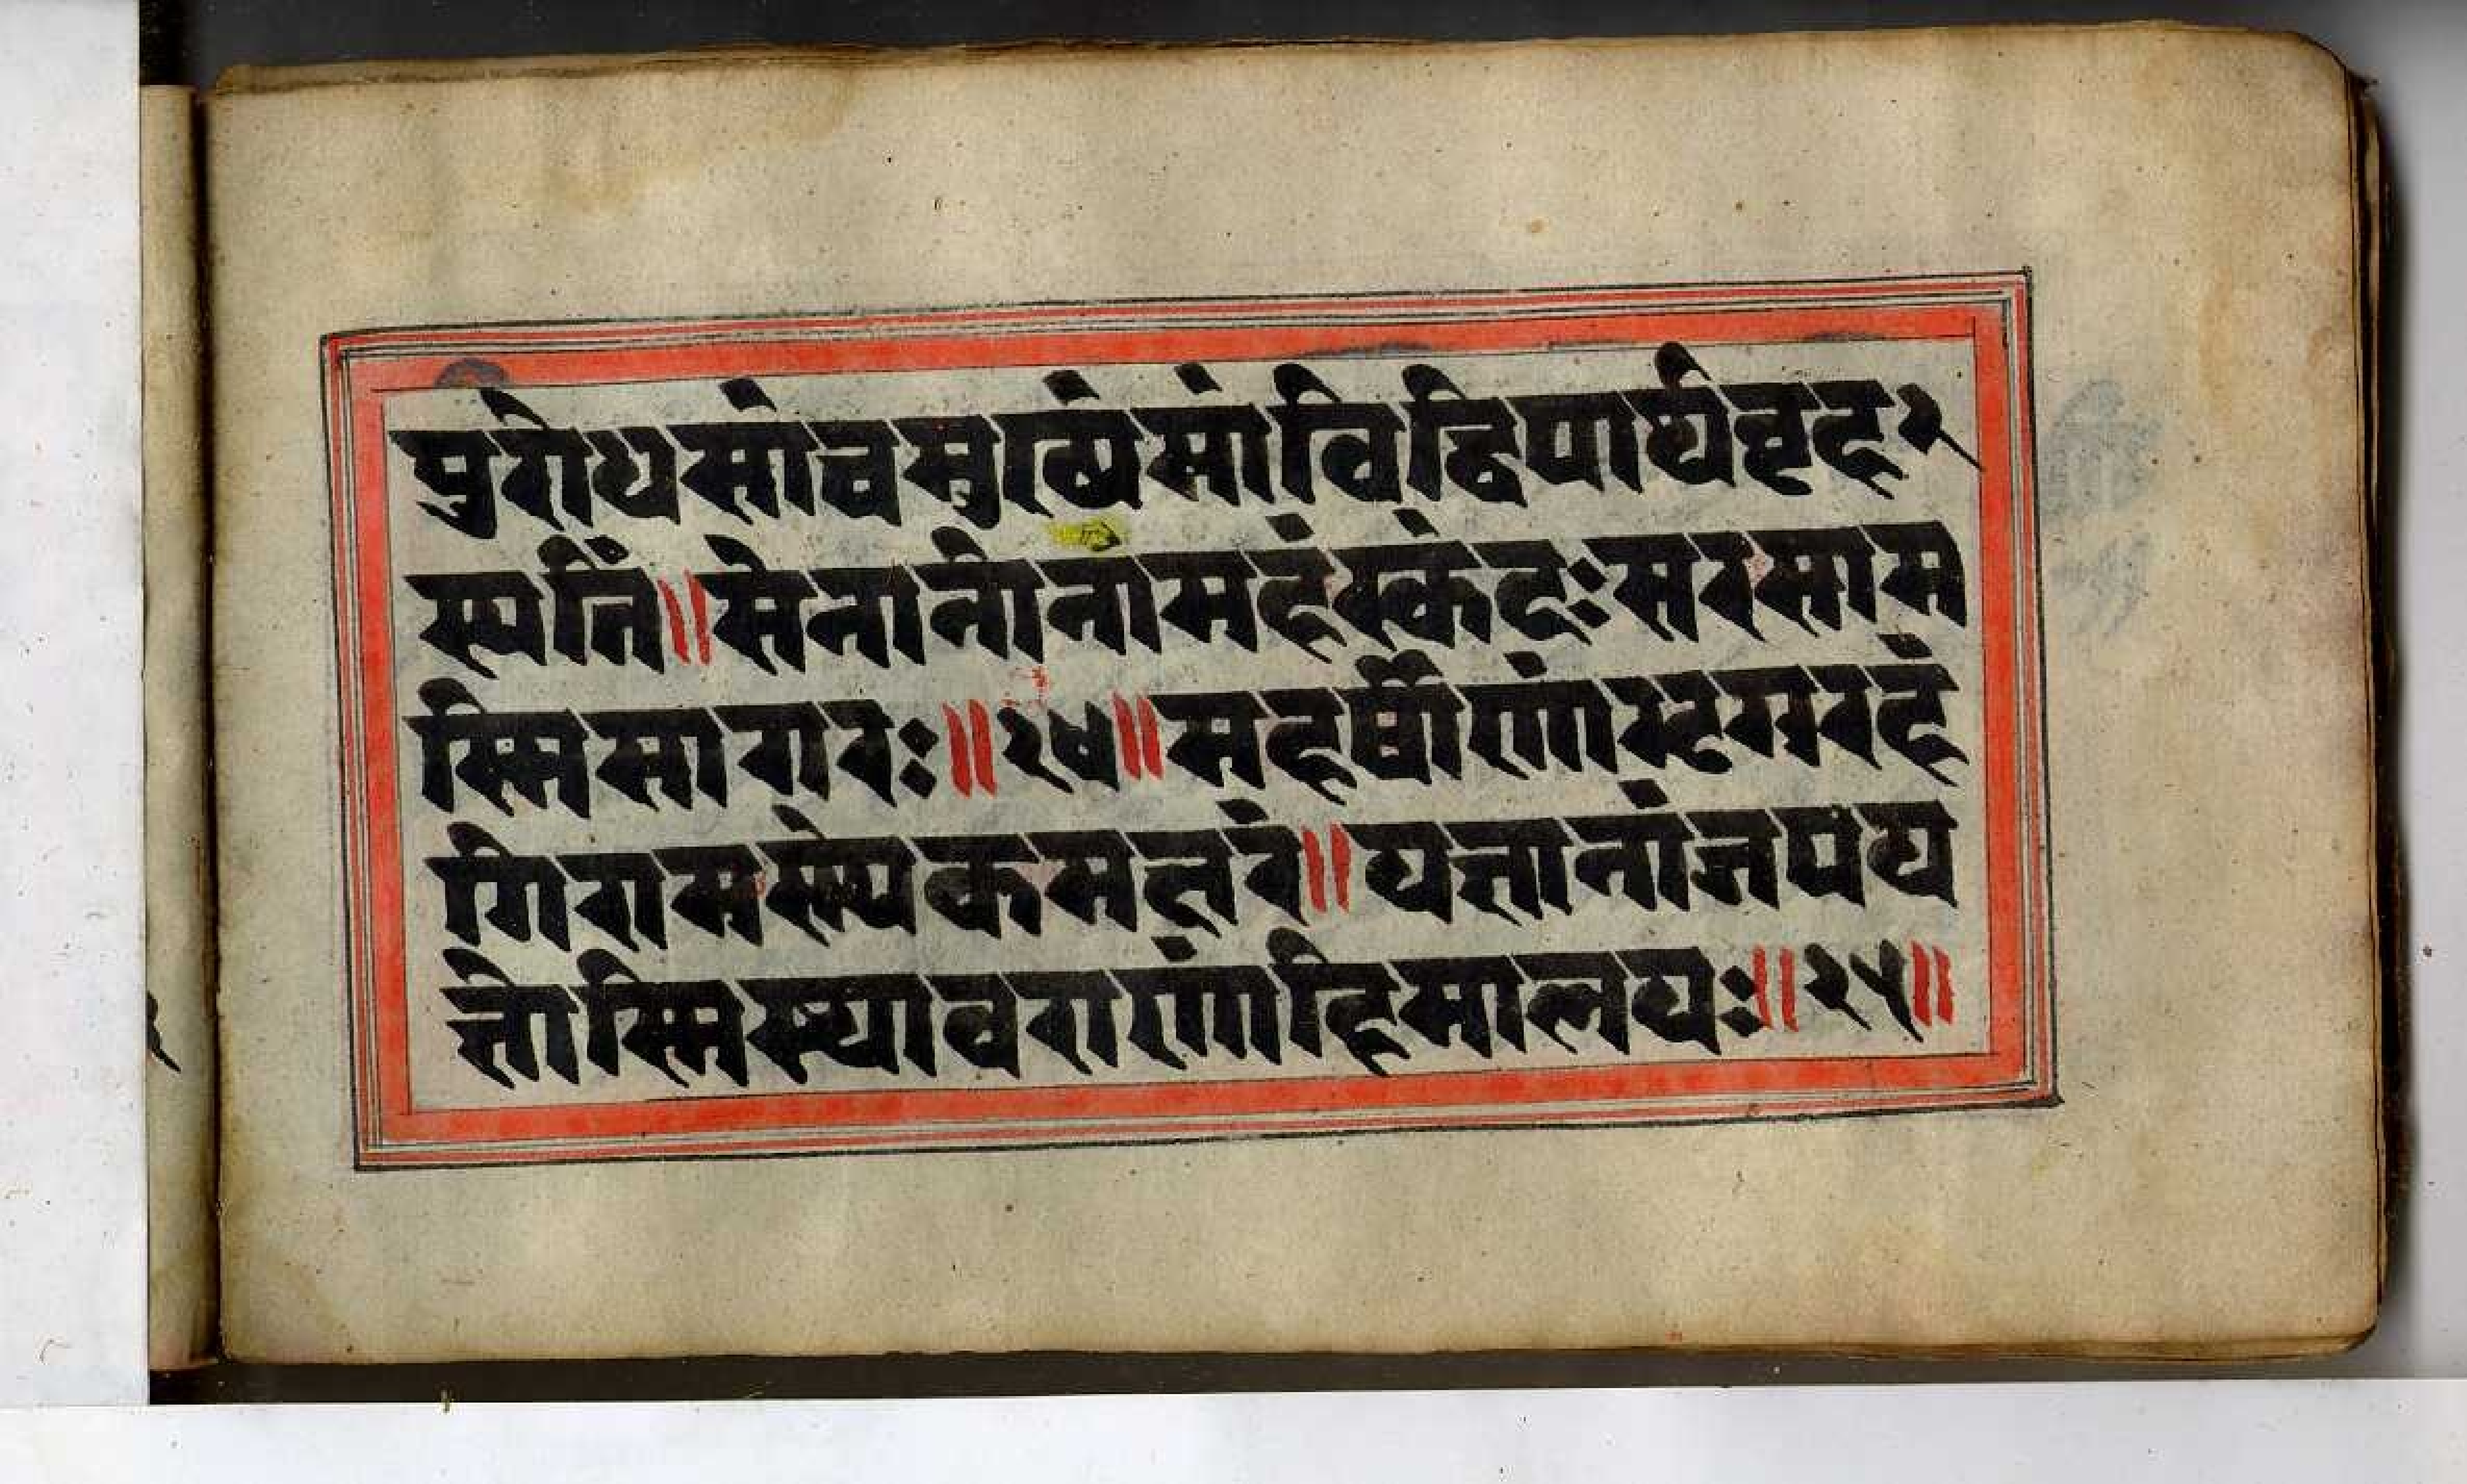 पुरोधसांचमुख्यंमांविद्धिपार्थबृह
स्पतिं॥सेनानीनामहंस्कंदःसरसाम
स्मिसागरः॥२४॥महर्षीणांभृगुरहं
गिरामस्म्येकमक्षरं॥यज्ञानांजपय
ज्ञोस्मिस्थावराणांहिमालयः॥२५॥